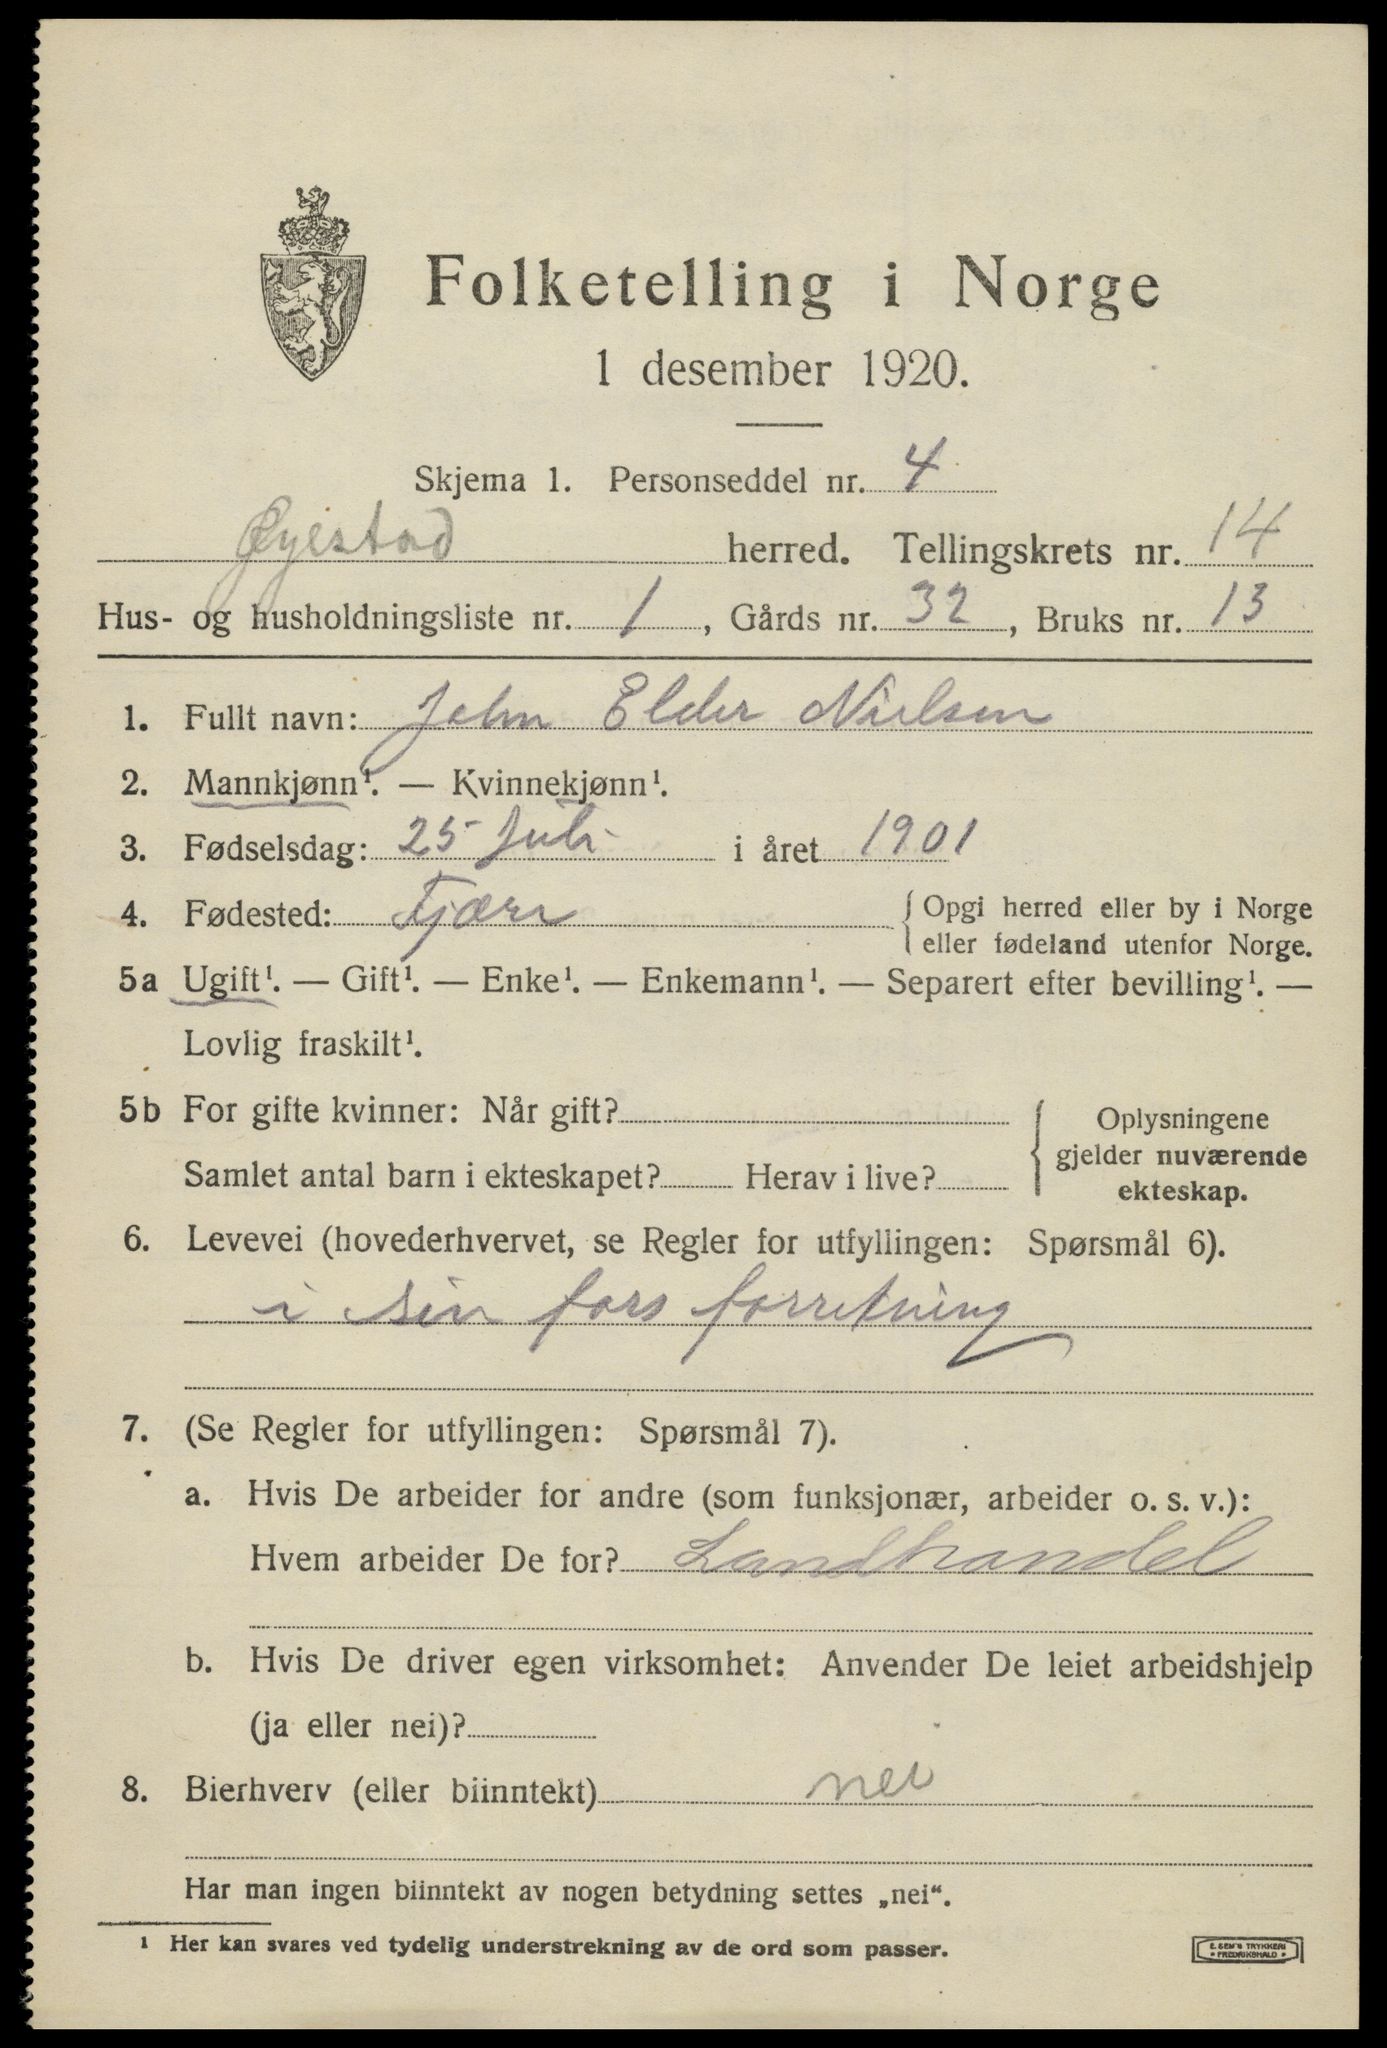 Folketelling i Norge
1 desember 1920.
Skjema 1. Personseddel nr. 4
Øyestad herred. Tellingskrets nr. 14
Hus- og husholdningsliste nr. 1, Gårds nr. 32, Bruks nr. 13
1. Fullt navn: John Elder Nielsen
2. Mannkjønn¹. — Kvinnekjønn¹.
3. Fødselsdag: 25 Juli i året 1901
4. Fødested: Fjære { Opgi herred eller by i Norge
eller fødeland utenfor Norge.
5a Ugift¹. — Gift¹. — Enke¹. — Enkemann¹. — Separert efter bevilling¹. —
Lovlig fraskilt¹.
5b For gifte kvinner: Når gift? { Oplysningene
gjelder nuværende
Samlet antal barn i ekteskapet? Herav i live?
ekteskap.
6. Levevei (hovederhvervet, se Regler for utfyllingen: Spørsmål 6).
i sin fars forretning
7. (Se Regler for utfyllingen: Spørsmål 7).
a. Hvis De arbeider for andre (som funksjonær, arbeider o. s. v.):
Hvem arbeider De for? Landhandel
b. Hvis De driver egen virksomhet: Anvender De leiet arbeidshjelp
(ja eller nei)?
8. Bierhverv (eller biinntekt) nei
Har man ingen biinntekt av nogen betydning settes „nei“.
¹ Her kan svares ved tydelig understrekning av de ord som passer.
E. SEM'S TRYKKERI
• FREDRIKSHALD •